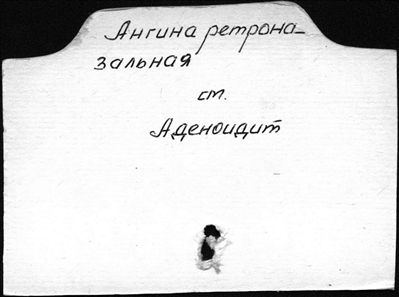 Ангина ретрона-
зальная
см.
Аденоидит